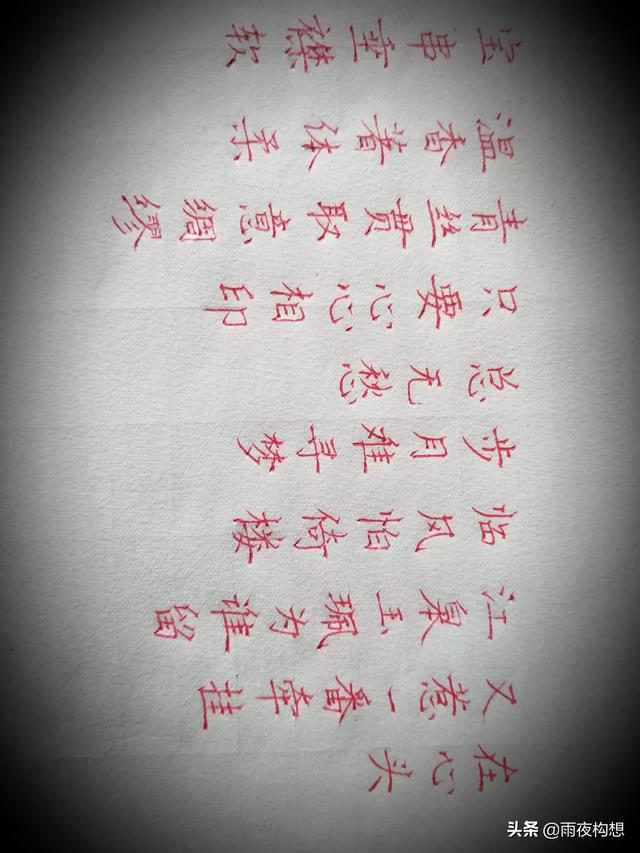 宝串垂襟软
温香着体柔
青丝贯取意绸缪
只要心相印
总无愁
步月难寻梦
临风怕倚楼
江皋玉珮为谁留
又惹一番牵挂
在心头
头条 @雨夜构想